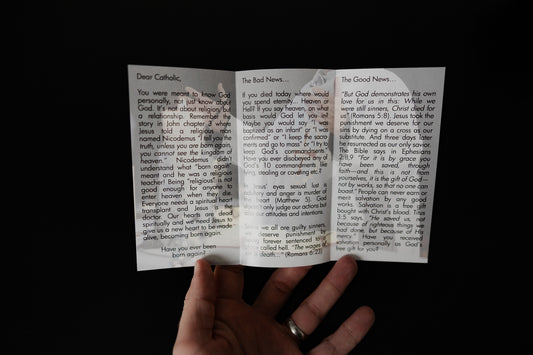 Dear Catholic,
You were meant to know God
personally, not just know about
God. It's not about religion but
a relationship. Remember the
story in John chapter 3 where
Jesus told a religious man
named Nicodemus "I tell you the
truth, unless you are born again,
you cannot see the kingdom of
heaven." Nicodemus didn't
understand what "born again"
meant and he was a religious
teacher! Being "religious" is not
good enough for anyone to
enter heaven when they die.
Everyone needs a spiritual heart
transplant and Jesus is the
doctor. Our hearts are dead
spiritually and we need Jesus to
give us a new heart to be made
alive, becoming born again.
Have you ever been
born again?
The Bad News...
If you died today where would
you spend eternity... Heaven or
Hell? If you say heaven, on what
basis would God let you in?
Maybe you would say "I was
baptized as an infant" or "I was
confirmed" or "I keep the sacra
ments and go to mass" or "I try to
keep God's commandments."
Have you ever disobeyed any of
God's 10 commandments like
lying, stealing or coveting etc.?
In Jesus' eyes sexual lust is
adultery and anger is murder of
the heart (Matthew 5). God
will not only judge our actions but
also our attitudes and intentions.
we all are guilty sinners,
deserve punishment by
being forever sentenced to
called hell. "The wages of
death..." (Romans 6:23)
The Good News...
"But God demonstrates his own
love for us in this: While we
were still sinners, Christ died for
us" (Romans 5:8). Jesus took the
punishment we deserve for our
sins by dying on a cross as our
substitute. And three days later
he resurrected as our only savior.
The Bible says in Ephesians
2:8,9 "For it is by grace you
have been saved, through
faith—and this is not from
yourselves, it is the gift of God—
not by works, so that no one can
boast." People can never earn or
merit salvation by any good
works. Salvation is a free gift
bought with Christ's blood. Titus
3:5 says, "He saved us, not
because of righteous things we
had done, but because of His
mercy." Have you received
salvation personally as God's
free gift for you?